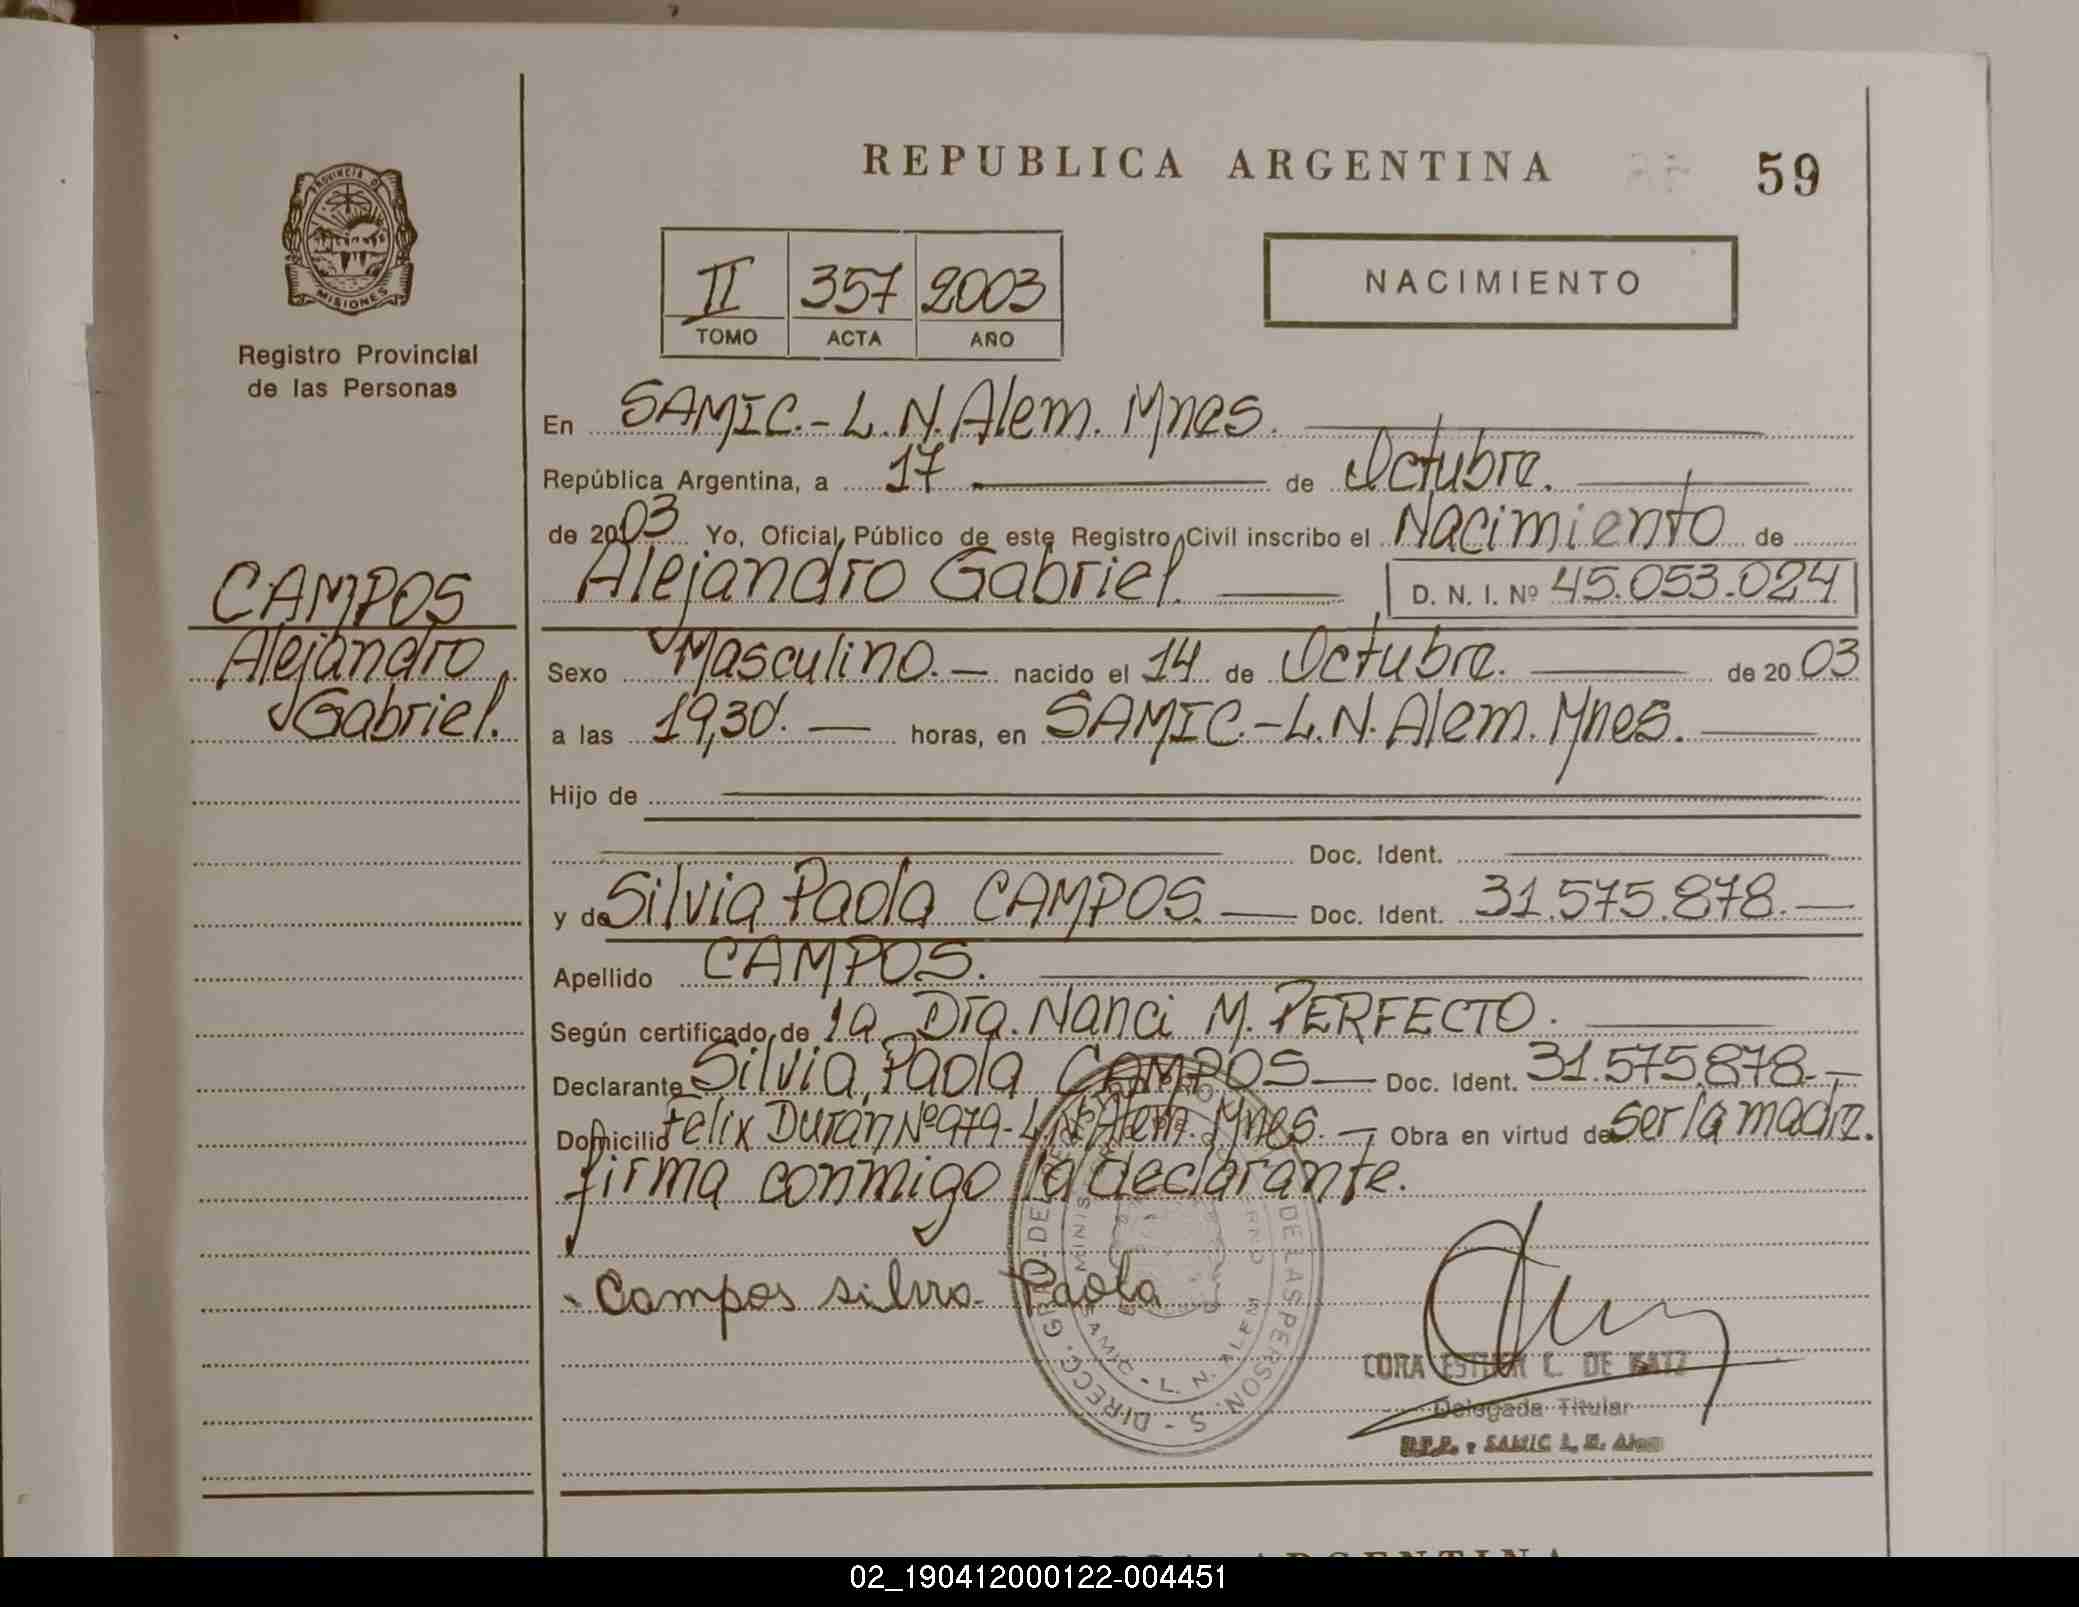 REPUBLICA ARGENTINA
59
PROVINCIA DE
MISIONES
Registro Provincial
de las Personas
II 357 2003
TOMO ACTA AÑO
NACIMIENTO
CAMPOS
Alejandro
Gabriel.
En SAMIC.-L.N.Alem.Mnes.
República Argentina, a 17 de Octubre.
de 2003 Yo, Oficial Público de este Registro Civil inscribo el Nacimiento de
Alejandro Gabriel. D. N. I. Nº 45.053.024
Sexo Masculino.- nacido el 14 de Octubre. de 2003
a las 19,30. horas, en SAMIC.-L.N.Alem.Mnes.
Hijo de
Doc. Ident.
y de Silvia Paola CAMPOS. Doc. Ident. 31.575.878.-
Apellido CAMPOS.
Según certificado de la Dra. Nanci M. PERFECTO.
Declarante Silvia Paola CAMPOS Doc. Ident. 31.575.878.-
Domicilio Felix Durán Nº979-L.N.Alem.Mnes.- Obra en virtud de ser la madre.
firma conmigo la declarante.
Campos silvia Paola
DIRECC. GRAL. DEL DE LAS PERSON. S
MINIS
SAMIC - L. N. ALEM
CORA ESTHER C. DE KATZ
Delegada Titular
SAMIC L. N. Alem
ARGENTINA
02_190412000122-004451